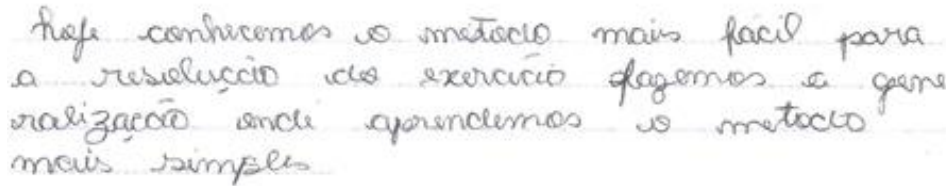 hoje conhecemos o metodo mais fácil para
a resolução do exercício fazemos a gene
ralização onde aprendemos o metodo
mais simples